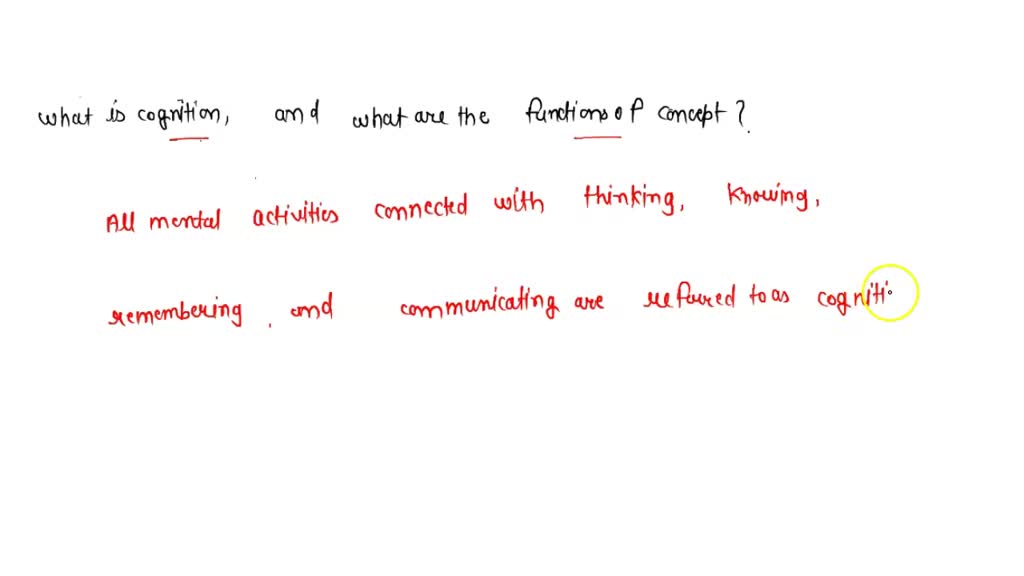 what is cognition, and what are the functions of concept?
All mental activities connected with thinking, knowing,
remembering, and communicating are referred to as cogniti